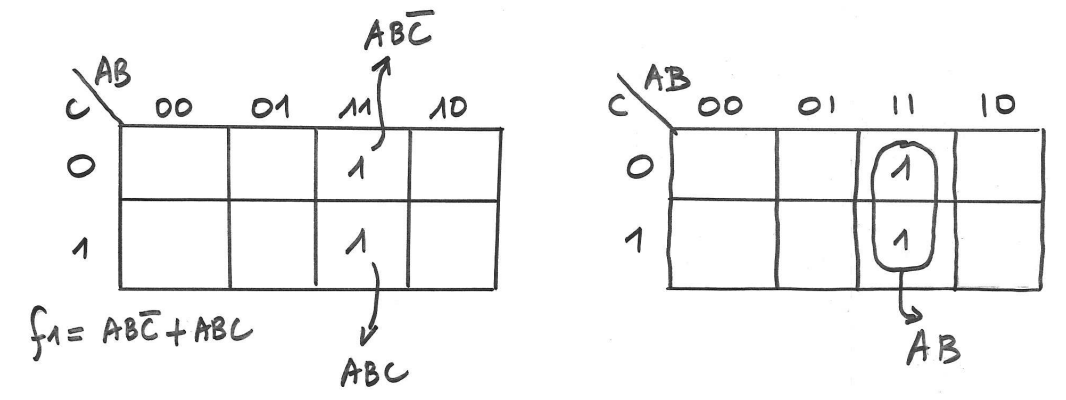 ABC̅
AB
C 00 01 11 10
0 1
1 1
f1 = ABC̅ + ABC
ABC
AB
C 00 01 11 10
0 1
1 1
AB